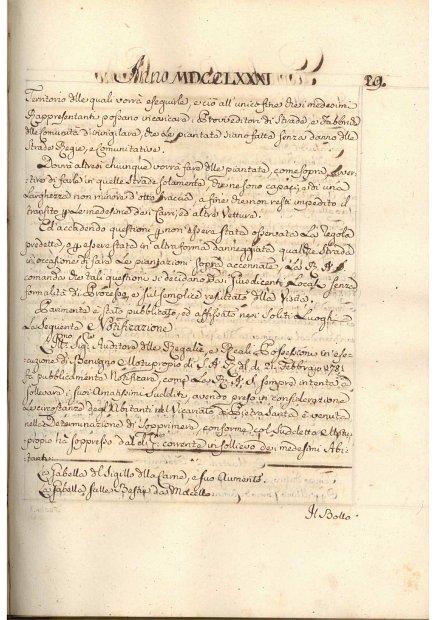 Anno MDCCLXXXI
29.
Territorio delle quali vorrà eseguirle, e ciò all'unico fine che i medesimi
Rappresentanti possano incaricare i Provveditori di Strade, e Fabbriche
delle Comunità di invigilare, che le piantate siano fatte senza danno delle
Strade Regie, e Comunitative.
Dovrà altresì chiunque vorrà fare delle piantate, come sopra, avver-
tire di farle in quelle Strade solamente, che ne sono capaci, e di una
Larghezza non minore d'otto braccia, a fine che non resti impedito il
transito per le medesime dei Carri, ed altre Vetture.
Ed accadendo questioni per non essere state osservate le Regole
predette, e per essere state in altra forma danneggiata qualche Strada
in occasione di fare le piantazioni sopra accennate, La R. A. S.
comanda che tali questioni si decidano dai Giusdicenti Locali senza
formalità di Processo, e sul semplice resultato della Visita.
Parimente è stato pubblicato, ed affissato nei Soliti Luoghi
La Seguente Notificazione
L'Ill.mo Sig.r Auditore delle Regalie, e Reali Possessioni in ese-
cuzione di Benigno Motuproprio di S. A. R. del dì 21. Febbraio 1781
fa pubblicamente Notificare, come La R. A. S. sempre intenta a
sollevare i suoi Amatissimi Sudditi, avendo preso in considerazione
Le circostanze degl'Abitanti nel Vicariato di Pietra Santa è venuta
nella Determinazione di Sopprimere, conforme col Suddetto Motu-
proprio ha soppresso dal dì corrente in sollievo dei medesimi Abi-
tanti
La Gabella del Sigillo della Carne, e suo Aumento.
La Gabella sulle Bestie da Macello
Il Bollo